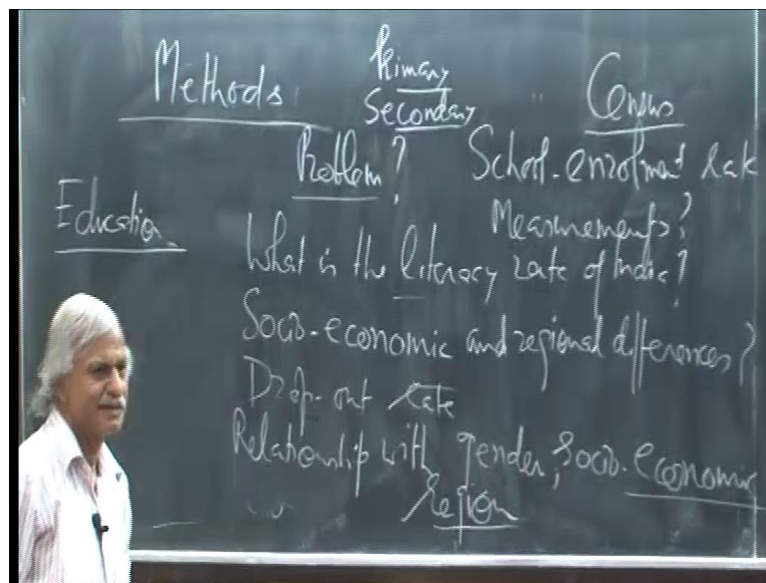 Methods
Primary
Secondary
Census
Problem?
School-enrolment rate
Education
Measurements?
What is the literacy rate of India?
Socio-economic and regional differences?
Drop-out rate
Relationship with gender, socio-economic
region